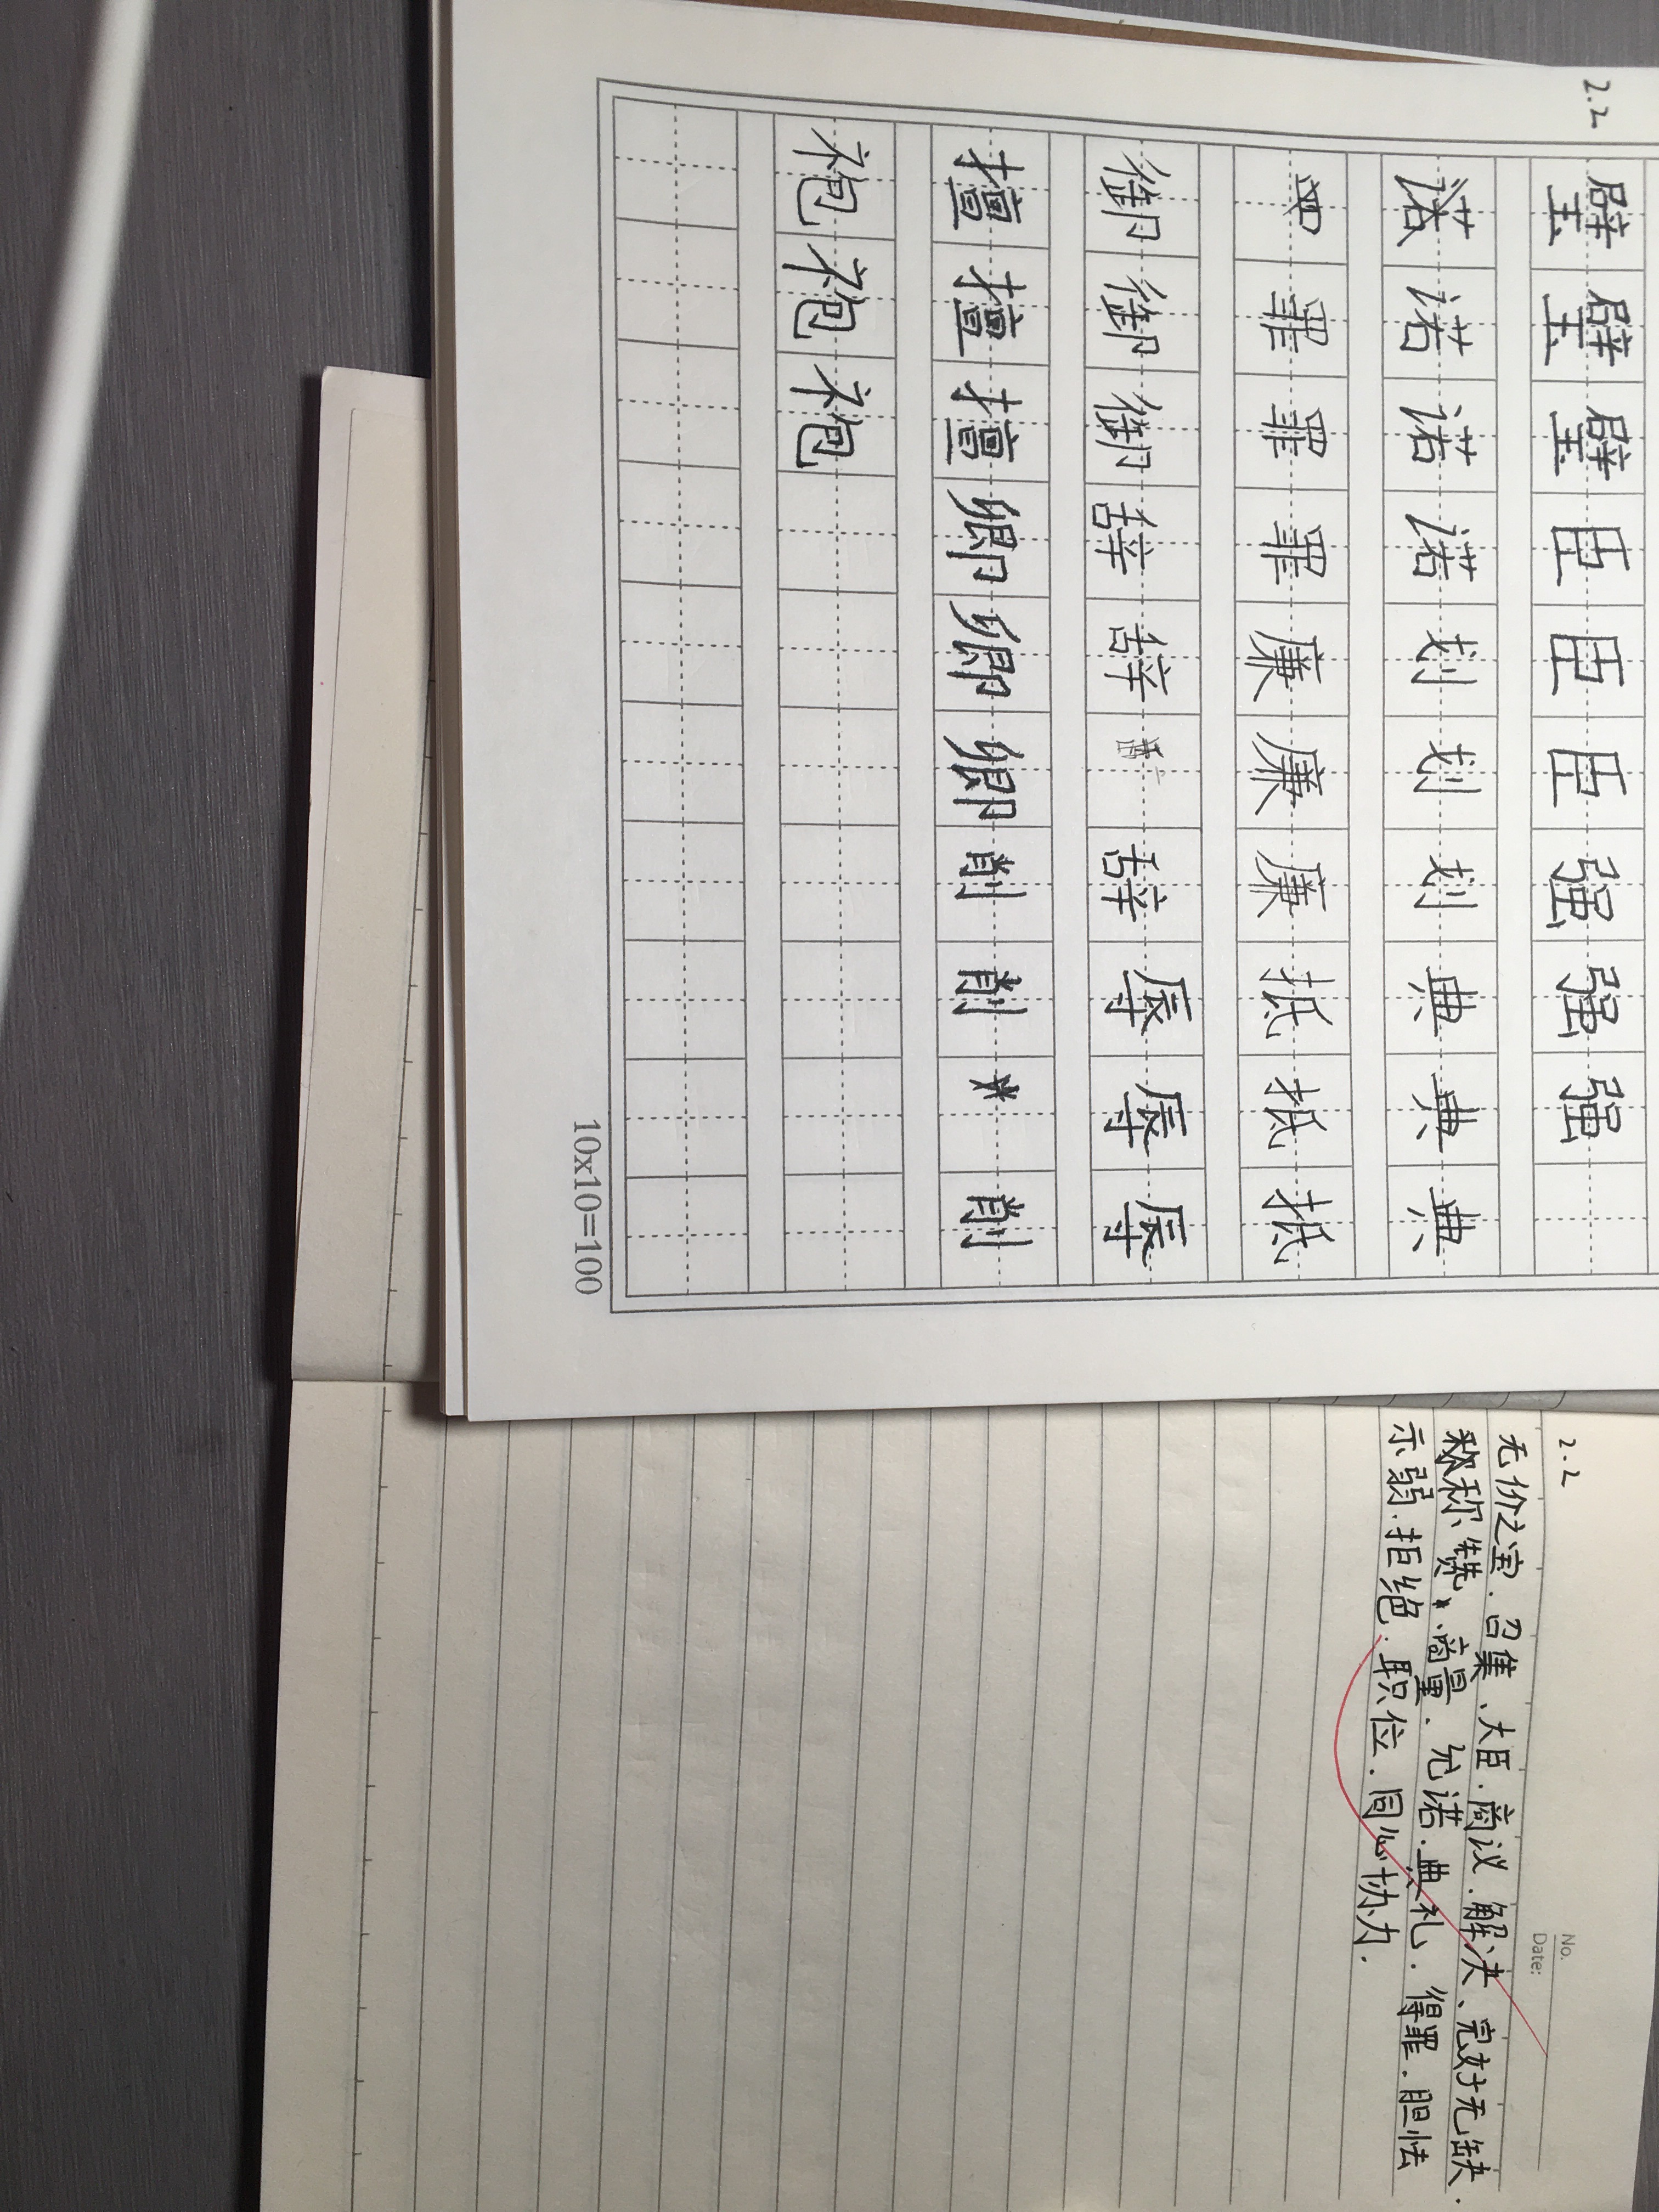 2.2
璧璧璧臣臣臣强强强
诺诺诺诺划划划典典典
罪罪罪廉廉廉抵抵抵
御御御辞辞辞辱辱辱
擅擅擅卿卿卿削削削
袍袍袍
10x10=100
2.2
No.
Date:
无价之宝.召集、大臣.商议.解决、完好无缺.
称赞、商量.允诺.典礼.得罪.胆怯
示弱.拒绝.职位.同心协力.